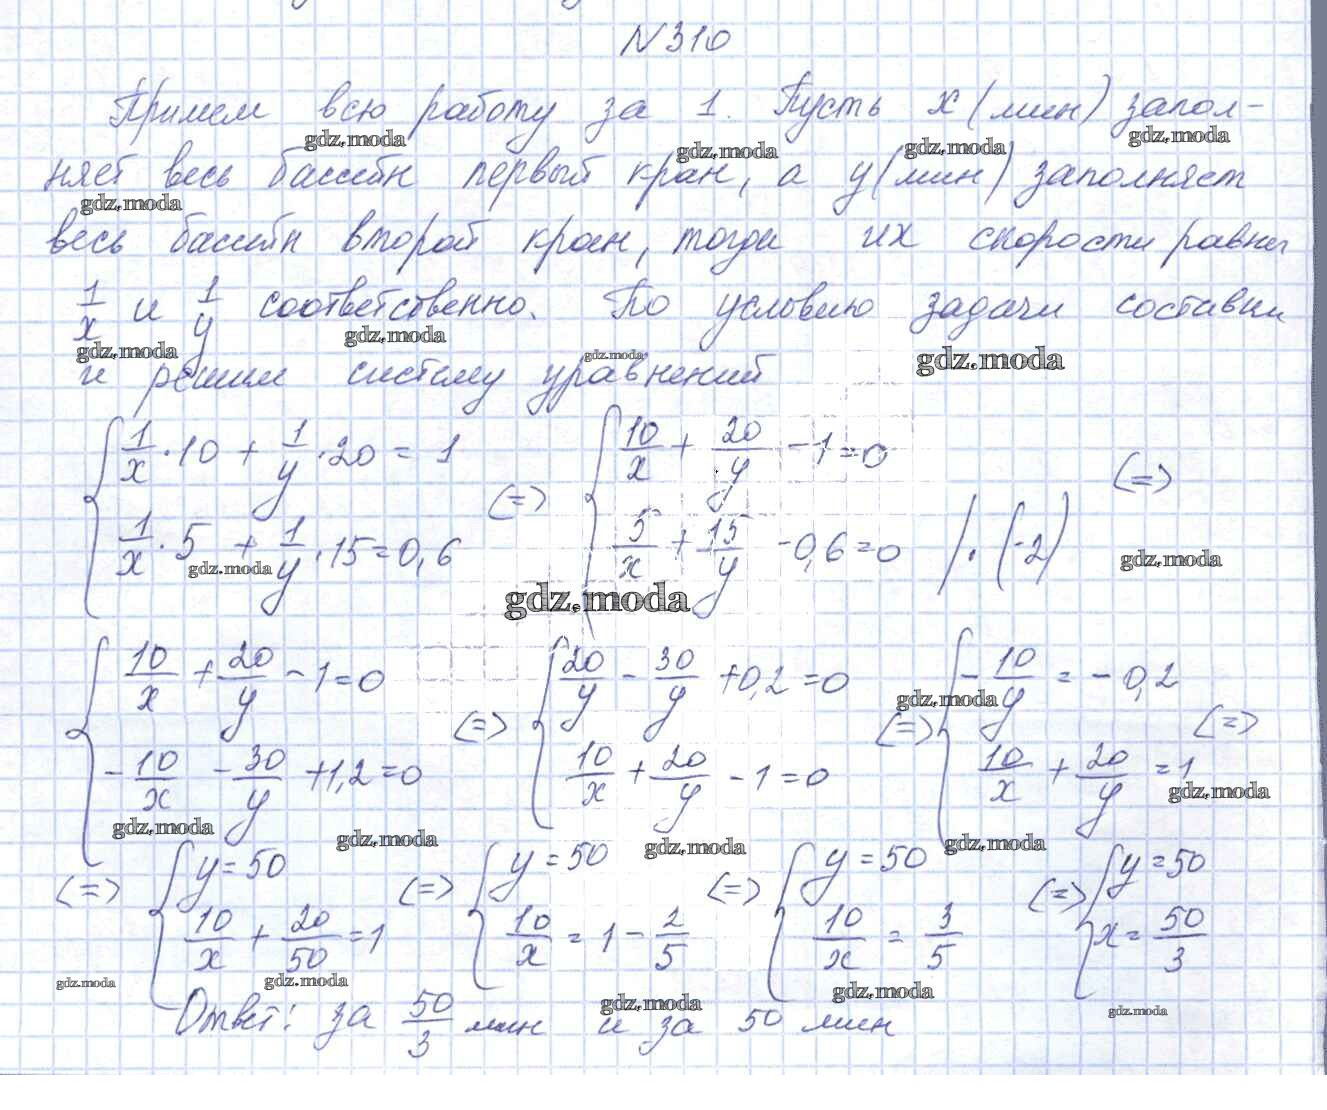 N 310
Примем всю работу за 1. Пусть x (мин) запол-
няет весь бассейн первый кран, а y (мин) заполняет
весь бассейн второй кран, тогда их скорости равны
1/x и 1/y соответственно. По условию задачи составим
и решим систему уравнений
{ 1/x · 10 + 1/y · 20 = 1 (=) { 10/x + 20/y - 1 = 0 (=)
{ 1/x · 5 + 1/y · 15 = 0,6 { 5/x + 15/y - 0,6 = 0 | · (-2)
{ 10/x + 20/y - 1 = 0 (=) { 20/y - 30/y + 0,2 = 0 (=) { - 10/y = - 0,2 (=)
{ - 10/x - 30/y + 1,2 = 0 { 10/x + 20/y - 1 = 0 { 10/x + 20/y = 1
(=) { y = 50 (=) { y = 50 (=) { y = 50 (=) { y = 50
{ 10/x + 20/50 = 1 { 10/x = 1 - 2/5 { 10/x = 3/5 { x = 50/3
Ответ: за 50/3 мин и за 50 мин
gdz.moda